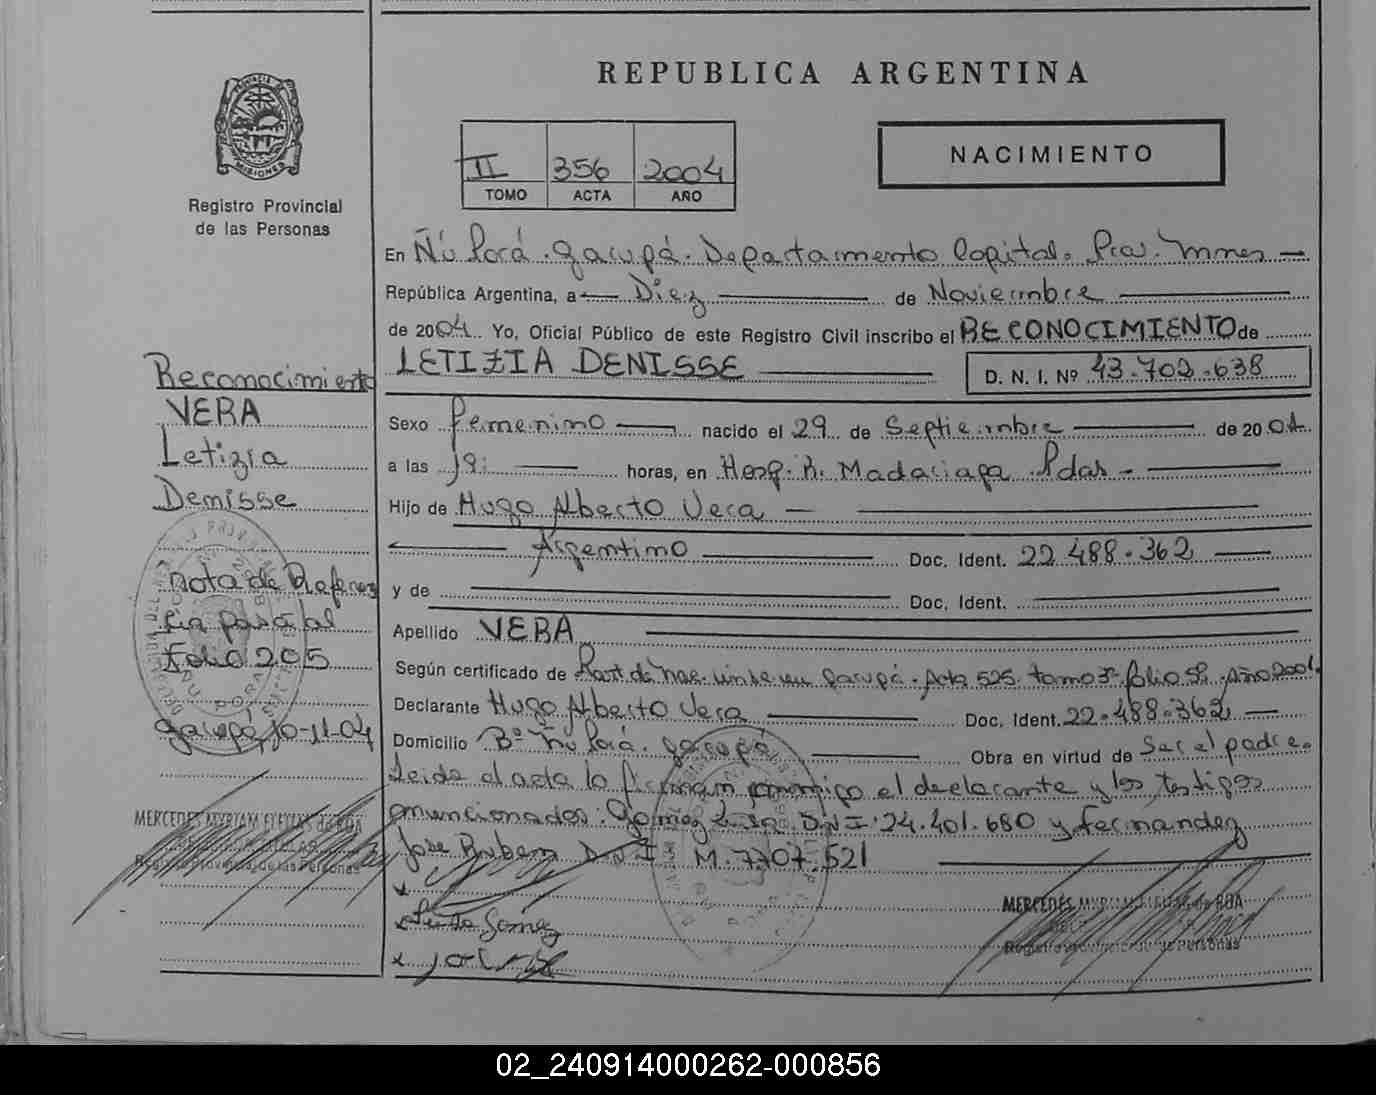 REPUBLICA ARGENTINA
PROVINCIA DE
MISIONES
Registro Provincial
de las Personas
II 356 2004
TOMO ACTA AÑO
NACIMIENTO
En Ñú Porá. Garupá. Departamento Capital. Pcia. Mnes
República Argentina, a Diez de Noviembre
de 2004. Yo, Oficial Público de este Registro Civil inscribo el RECONOCIMIENTO de
LETIZIA DENISSE
D. N. I. Nº 43.702.638
Sexo femenino nacido el 29 de Septiembre de 2004
a las 19: horas, en Hosp. R. Madariaga Pdas
Hijo de Hugo Alberto Vera
Argentino Doc. Ident. 22.488.362
y de
Doc. Ident.
Apellido VERA
Según certificado de Part. de Nac. Garupá. Acta 525. tomo 3º folio Año 2004.
Declarante Hugo Alberto Vera Doc. Ident. 22.488.362
Domicilio Bº Ñú Porá. Garupá Obra en virtud de Ser el padre.
Leida el acta la firman conmigo el declarante y los testigos
Gomez DNI 24.401.680 y fernandez
Jose Ruben D N I M. 7707.521
x
x Gomez
x
MERCEDES MYRIAM de ROA
Registro Provincial de las Personas
Reconocimiento
VERA
Letizia
Denisse
nota de Referen
cia
folio 205
Garupá, 10-11-04
MERCEDES MYRIAM de ROA
Registro Provincial de las Personas
02_240914000262-000856